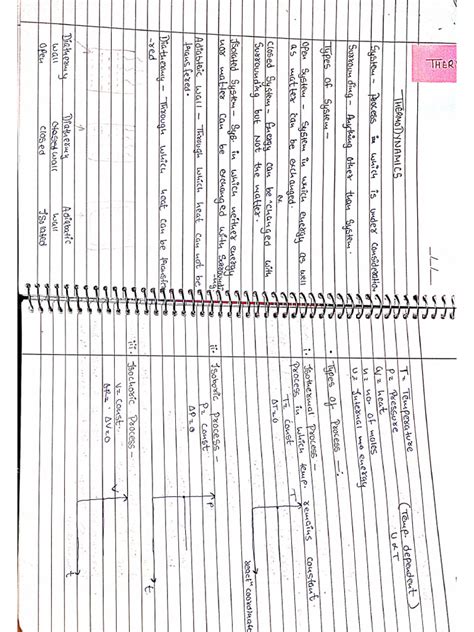 THER
THERMODYNAMICS
System - Process in which is under consideration
Surrounding - Anything other than System
Types of System -
Open System - System in which energy as well
as matter can be exchanged.
Closed System - Energy can be changed with
ex
Surrounding but Not the matter.
Isolated System - Sys. in which neither energy
nor matter can be exchanged with Surroundings
Adiabatic wall - Through which heat can not be
transfered.
Diathermy - Through which heat can be transfer
-red
Diathermy Diathermy Adibatic
wall wall wall
open closed Isolated
T = Temperature (Temp. dependent)
P = Pressure U ∝ T
q = heat
n = no. of moles
U = Internal energy
• Types of Process -:
i. Isothermal Process -
Process in which temp. remains constant.
T = const T
ΔT = 0
react^n coordinate
ii. Isobaric Process -
P = const P
ΔP = 0
t
iii. Isochoric Process -
V = const. V
ΔV = 0
t